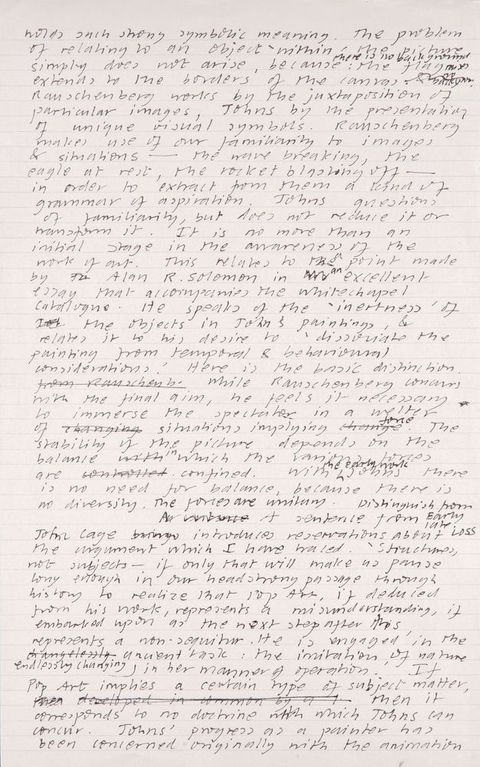 holds such strong symbolic meaning. The problem
of relating to an object 'within' the picture
simply does not arise, because the flag
there is no background
extends to the borders of the canvas
Rauschenberg works by the juxtaposition of
particular images, Johns by the presentation
of unique visual symbols. Rauschenberg
makes use of our familiarity to images
& situations — the wave breaking, the
eagle at rest, the rocket blasting off —
in order to extract from them a kind of
grammar of aspiration. Johns questions
of familiarity, but does not reduce it or
transform it. It is no more than an
initial stage in the awareness of the
work of art. This relates to the point made
by Alan R. Solomon in an excellent
essay that accompanies the Whitechapel
Catalogue. He speaks of the 'inertness' of
the objects in Johns paintings, &
relates it to his desire to 'dissociate the
painting from temporal & behavioural
considerations'. Here is the basic distinction
from Rauschenb. While Rauschenberg concurs
with the final aim, he feels it necessary
to immerse the spectator in a welter
of changing situations implying change force. The
stability of the picture depends on the
balance within in which the various forces
are controlled confined. With the early work Johns there
is no need for balance, because there is
no diversity. The forces are unitary. Distinguish from
A sentence from Early late
John Cage brings introduces reservations about Loss
the argument which I have traced. 'Structures,
not subjects — if only that will make us pause
long enough in our headstrong passage through
history to realize that Pop Art, if deduced
from his work, represents a misunderstanding, if
embarked upon as the next step after this
represents a non-sequitur. He is engaged in the
changelessly ancient task: the imitation of nature
endlessly changing) in her manner of operation.' If
Pop Art implies a certain type of subject matter,
then developed in common by a then it
corresponds to no doctrine with which Johns can
concur. Johns' progress as a painter has
been concerned originally with the animation